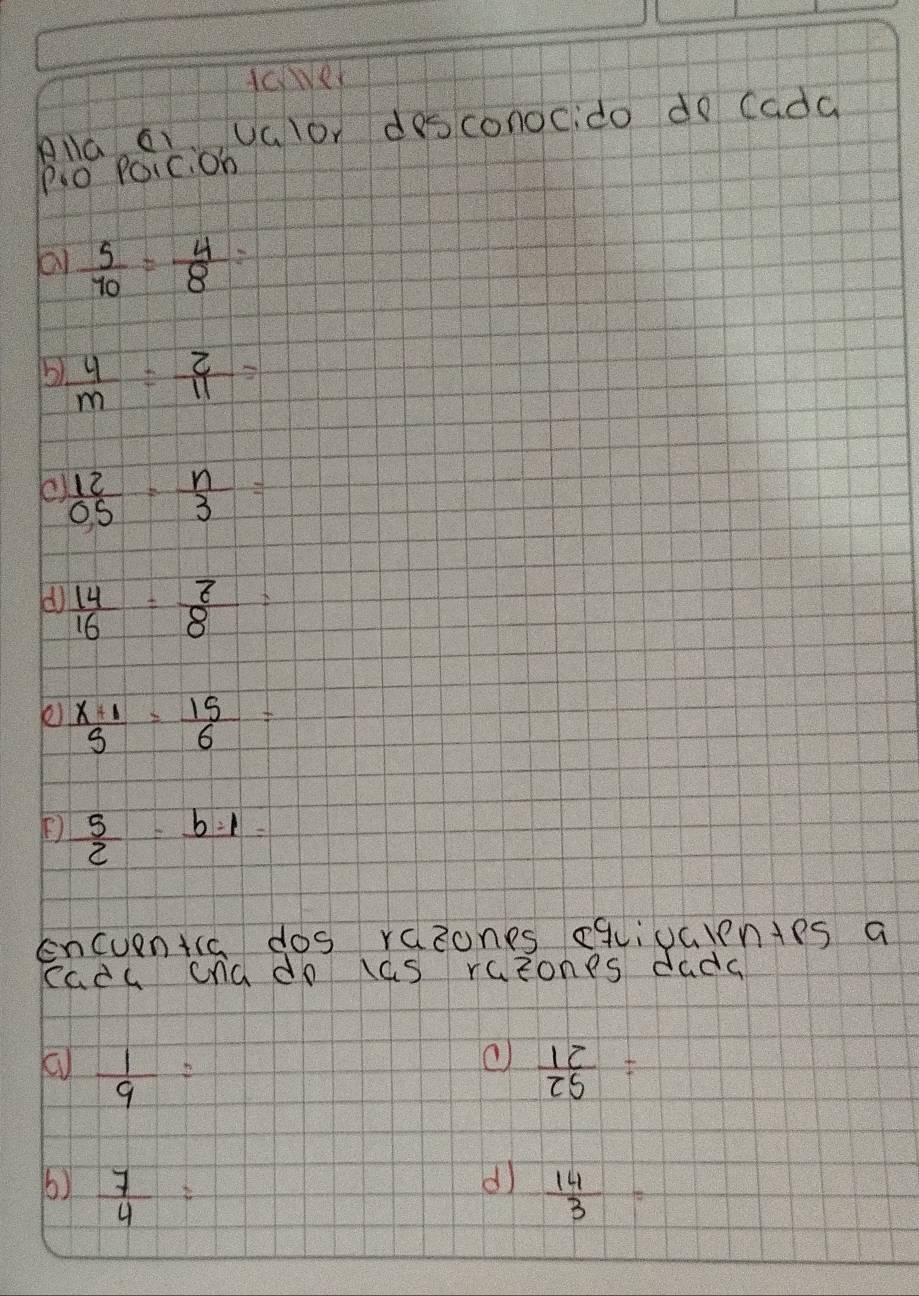 taller
Alla el valor desconocido de cada
proporcion
a) 5/10 = 4/8 =
b) 4/m = 2/11 =
c) 12/0,5 = n/3 =
d) 14/16 = z/8 =
e) x+1/5 = 15/6 =
F) 5/2 = b-1 =
encuentra dos razones equivalentes a
cada una de las razones dada
a) 1/9 =
c) 12/25 =
b) 7/4 =
d) 14/3 =